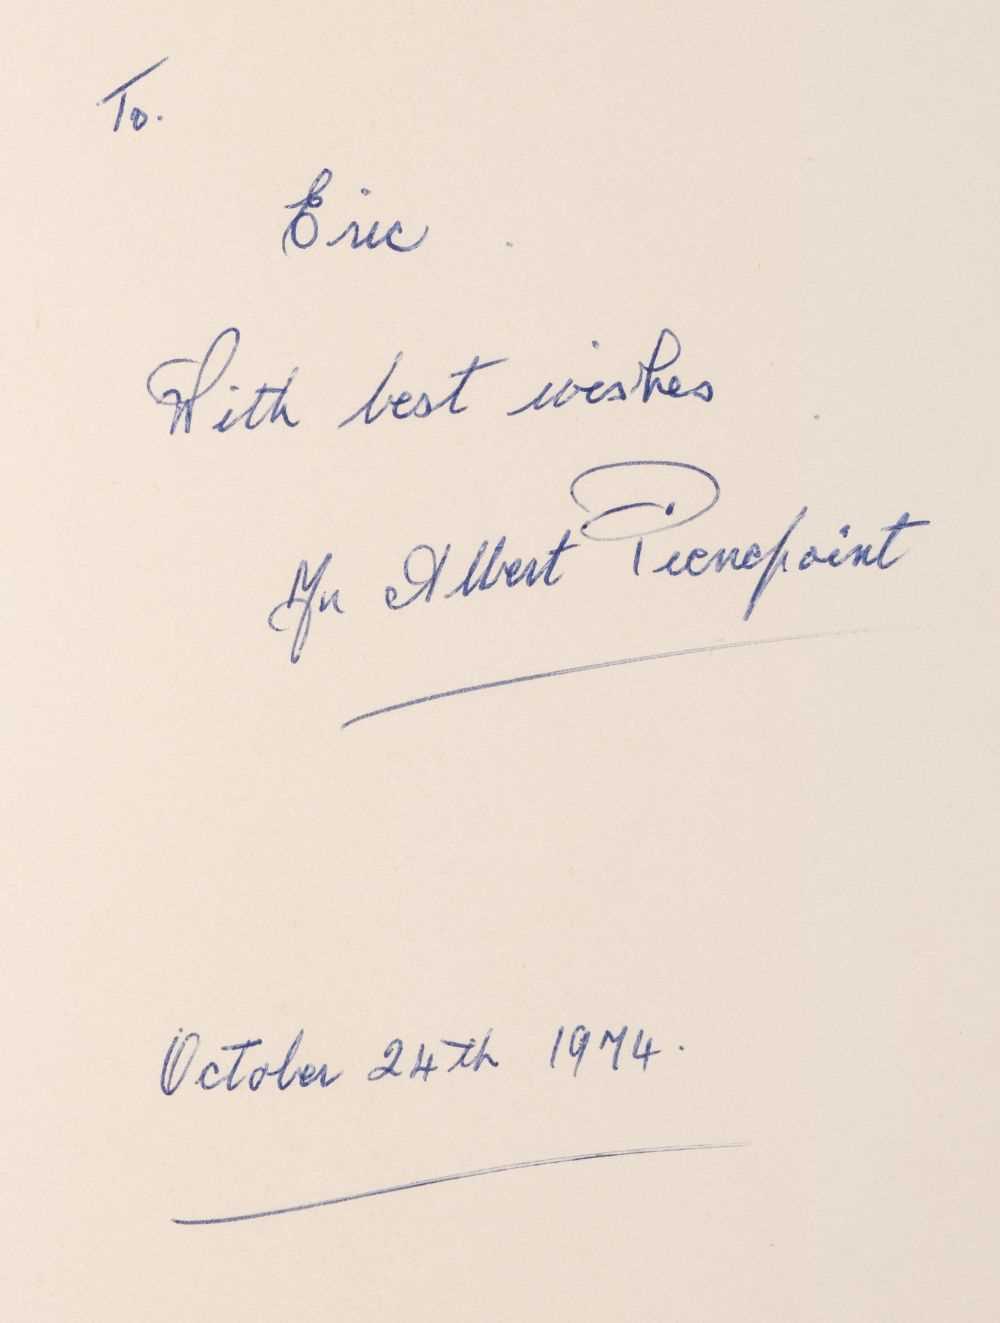 To.
Eric
With best wishes
Mr Albert Pierrepoint
October 24th 1974.